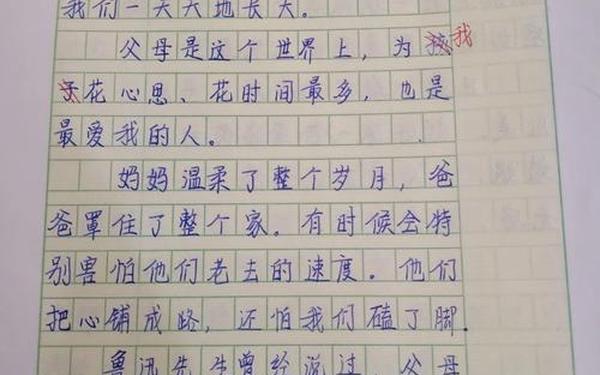 我们一天天地长大。
父母是这个世界上,为孩我
子花心思、花时间最多,也是
最爱我的人。
妈妈温柔了整个岁月,爸
爸罩住了整个家。有时候会特
别害怕他们老去的速度。他们
把心铺成路,还怕我们磕了脚.
鲁迅先生曾经说过,父母